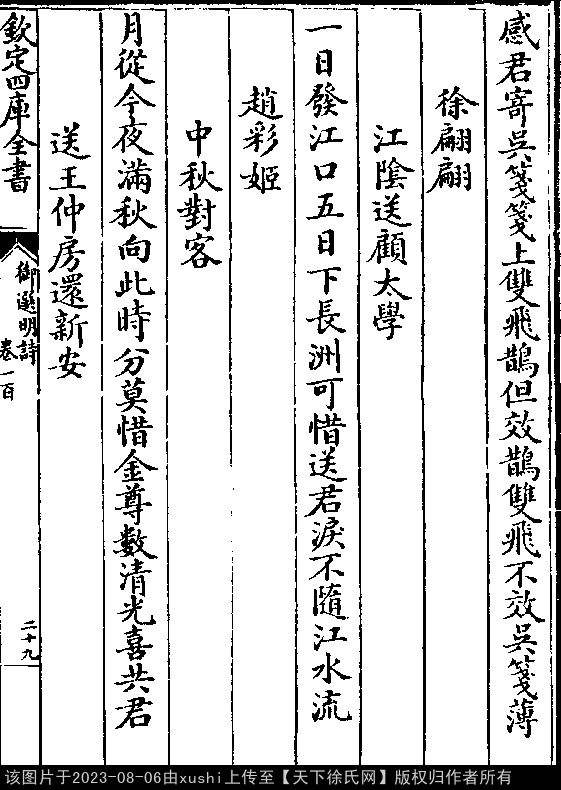 感君寄吳箋箋上雙飛鵲但效鵲雙飛不效吳箋薄
徐翩翩
江陰送顧太學
一日發江口五日下長洲可惜送君淚不隨江水流
趙彩姬
中秋對客
月從今夜滿秋向此時分莫惜金尊數清光喜共君
送王仲房還新安
欽定四庫全書
御選明詩
卷一百
二十九
该图片于2023-08-06由xushi上传至【天下徐氏网】版权归作者所有